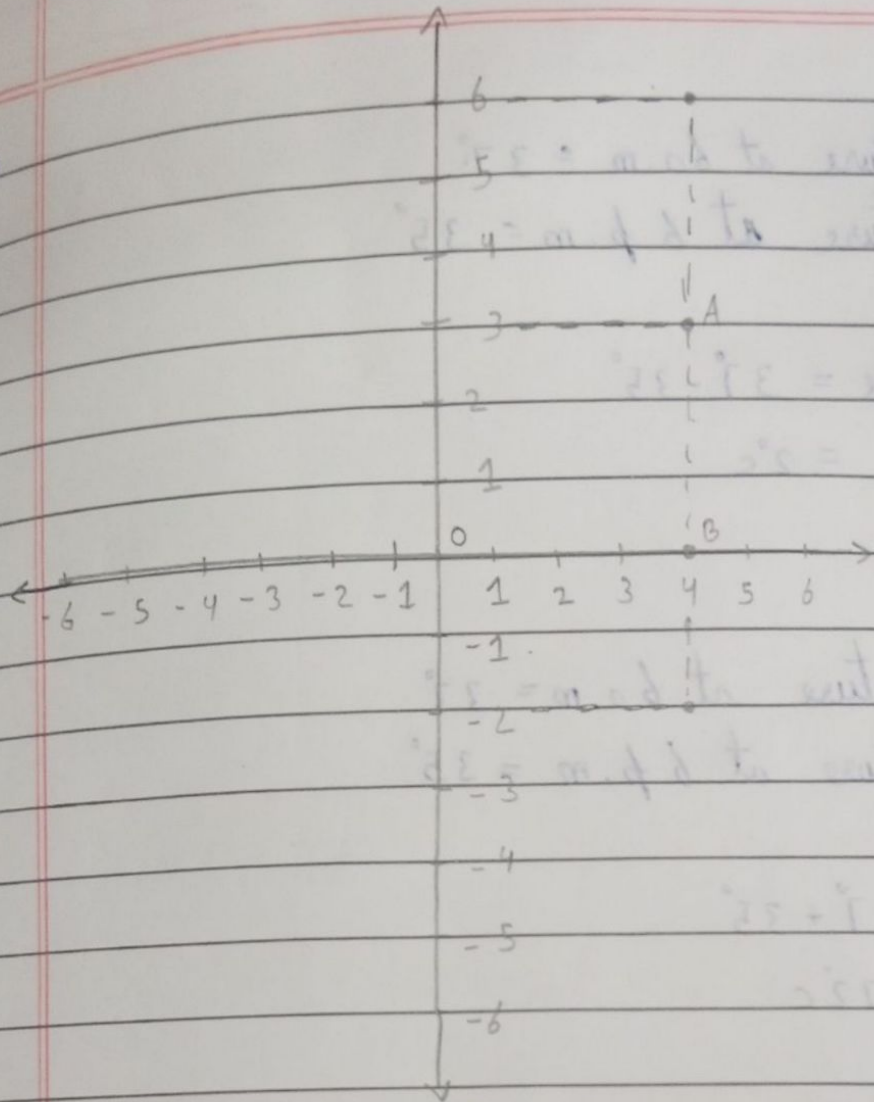 6
5
4
3 A
2
1
O B
-6 -5 -4 -3 -2 -1 1 2 3 4 5 6
-1
-2
-3
-4
-5
-6